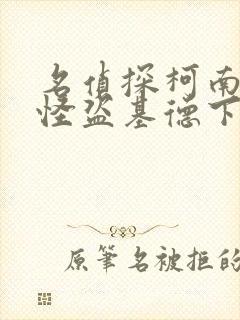 名偵探柯南
怪盗基德下
原筆名被拒的